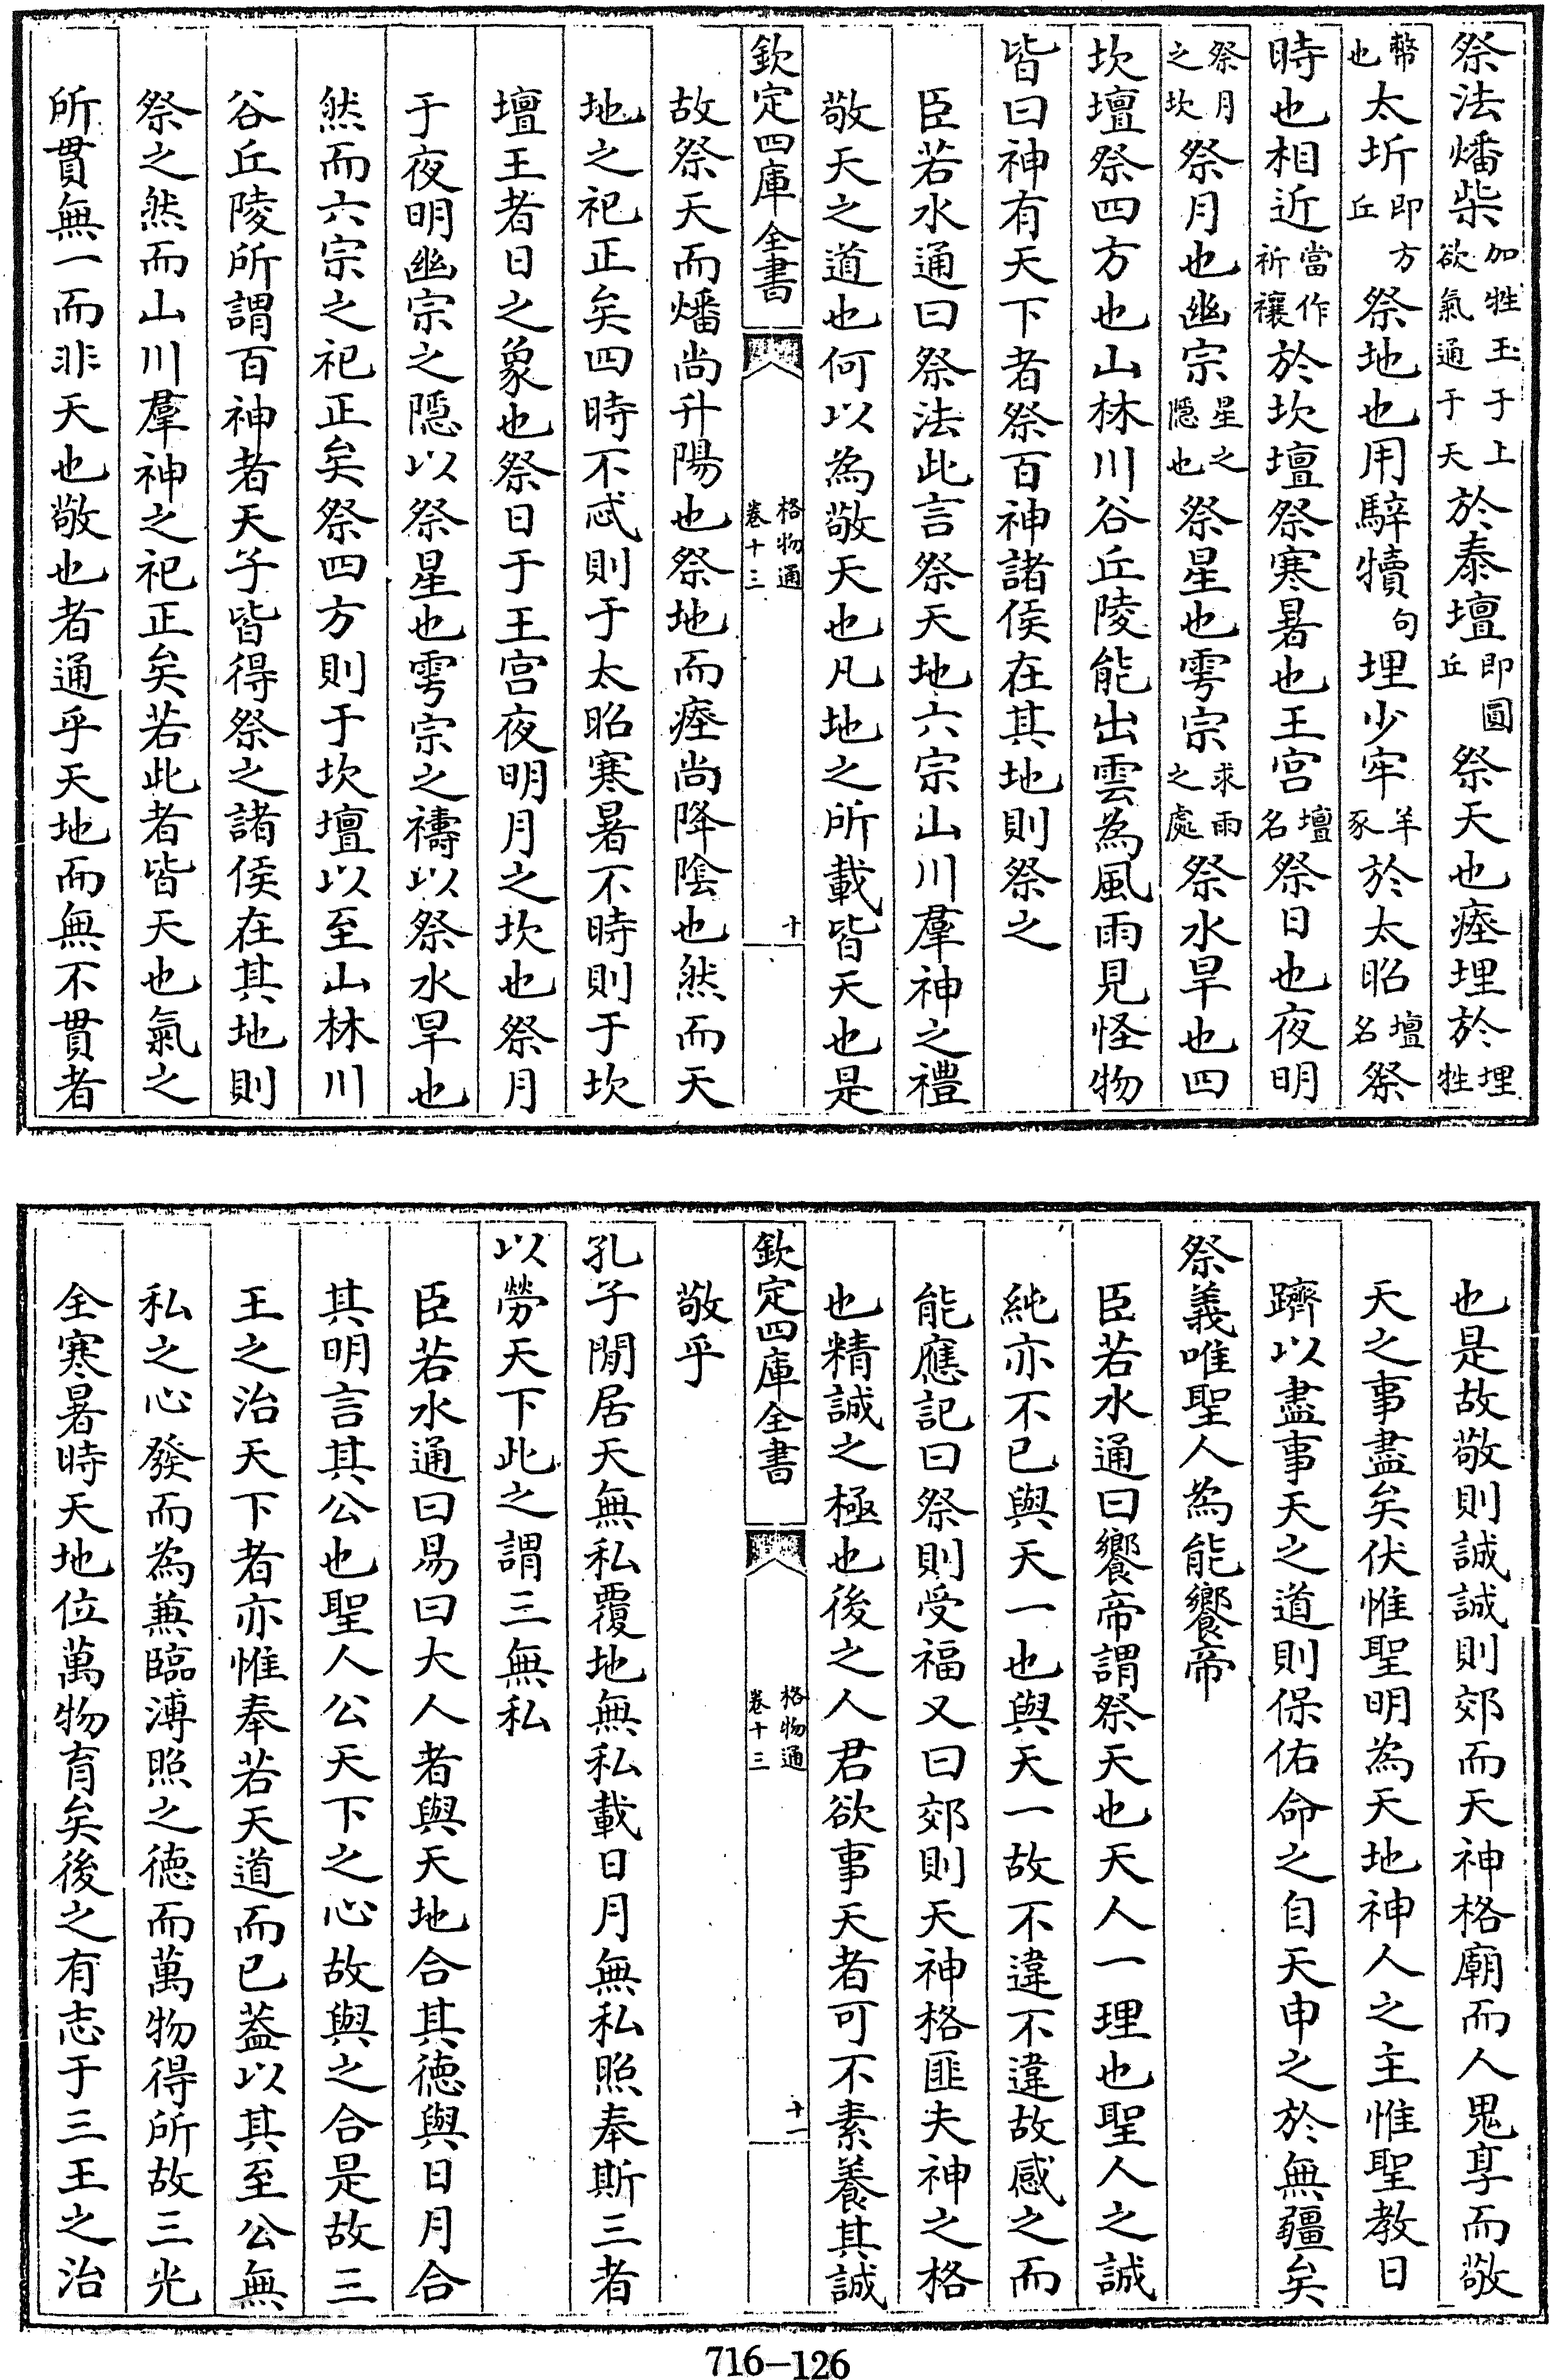 祭法燔柴加牲玉于上欲氣通于天於泰壇即圓丘祭天也瘞埋於埋牲
幣也太圻即方丘祭地也用騂犢句埋少牢羊豕於太昭壇名祭
時也相近當作祈禳於坎壇祭寒暑也王宫壇名祭日也夜明
祭月之坎祭月也幽宗星之隱也祭星也雩宗求雨之處祭水旱也四
坎壇祭四方也山林川谷丘陵能出雲為風雨見怪物
皆曰神有天下者祭百神諸侯在其地則祭之
臣若水通曰祭法此言祭天地六宗山川羣神之禮
敬天之道也何以為敬天也凡地之所載皆天也是
欽定四庫全書
格物通
卷十三
十
故祭天而燔尚升陽也祭地而瘞尚降陰也然而天
地之祀正矣四時不忒則于太昭寒暑不時則于坎
壇王者日之象也祭日于王宫夜明月之坎也祭月
于夜明幽宗之隱以祭星也雩宗之禱以祭水旱也
然而六宗之祀正矣祭四方則于坎壇以至山林川
谷丘陵所謂百神者天子皆得祭之諸侯在其地則
祭之然而山川羣神之祀正矣若此者皆天也氣之
所貫無一而非天也敬也者通乎天地而無不貫者
也是故敬則誠誠則郊而天神格廟而人鬼享而敬
天之事盡矣伏惟聖明為天地神人之主惟聖教日
躋以盡事天之道則保佑命之自天申之於無疆矣
祭義唯聖人為能饗帝
臣若水通曰饗帝謂祭天也天人一理也聖人之誠
純亦不已與天一也與天一故不違不違故感之而
能應記曰祭則受福又曰郊則天神格匪夫神之格
也精誠之極也後之人君欲事天者可不素養其誠
欽定四庫全書
格物通
卷十三
十一
敬乎
孔子閒居天無私覆地無私載日月無私照奉斯三者
以勞天下此之謂三無私
臣若水通曰易曰大人者與天地合其德與日月合
其明言其公也聖人公天下之心故與之合是故三
王之治天下者亦惟奉若天道而已葢以其至公無
私之心發而為兼臨溥照之德而萬物得所故三光
全寒暑時天地位萬物育矣後之有志于三王之治
716-126